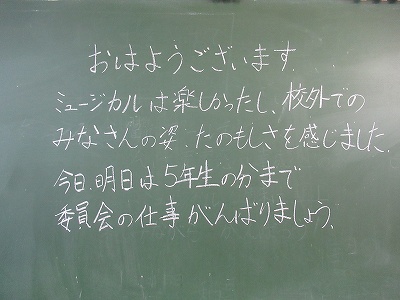 おはようございます.
ミュージカルは楽しかったし、校外での
みなさんの姿、たのもしさを感じました.
今日、明日は5年生の分まで
委員会の仕事がんばりましょう.